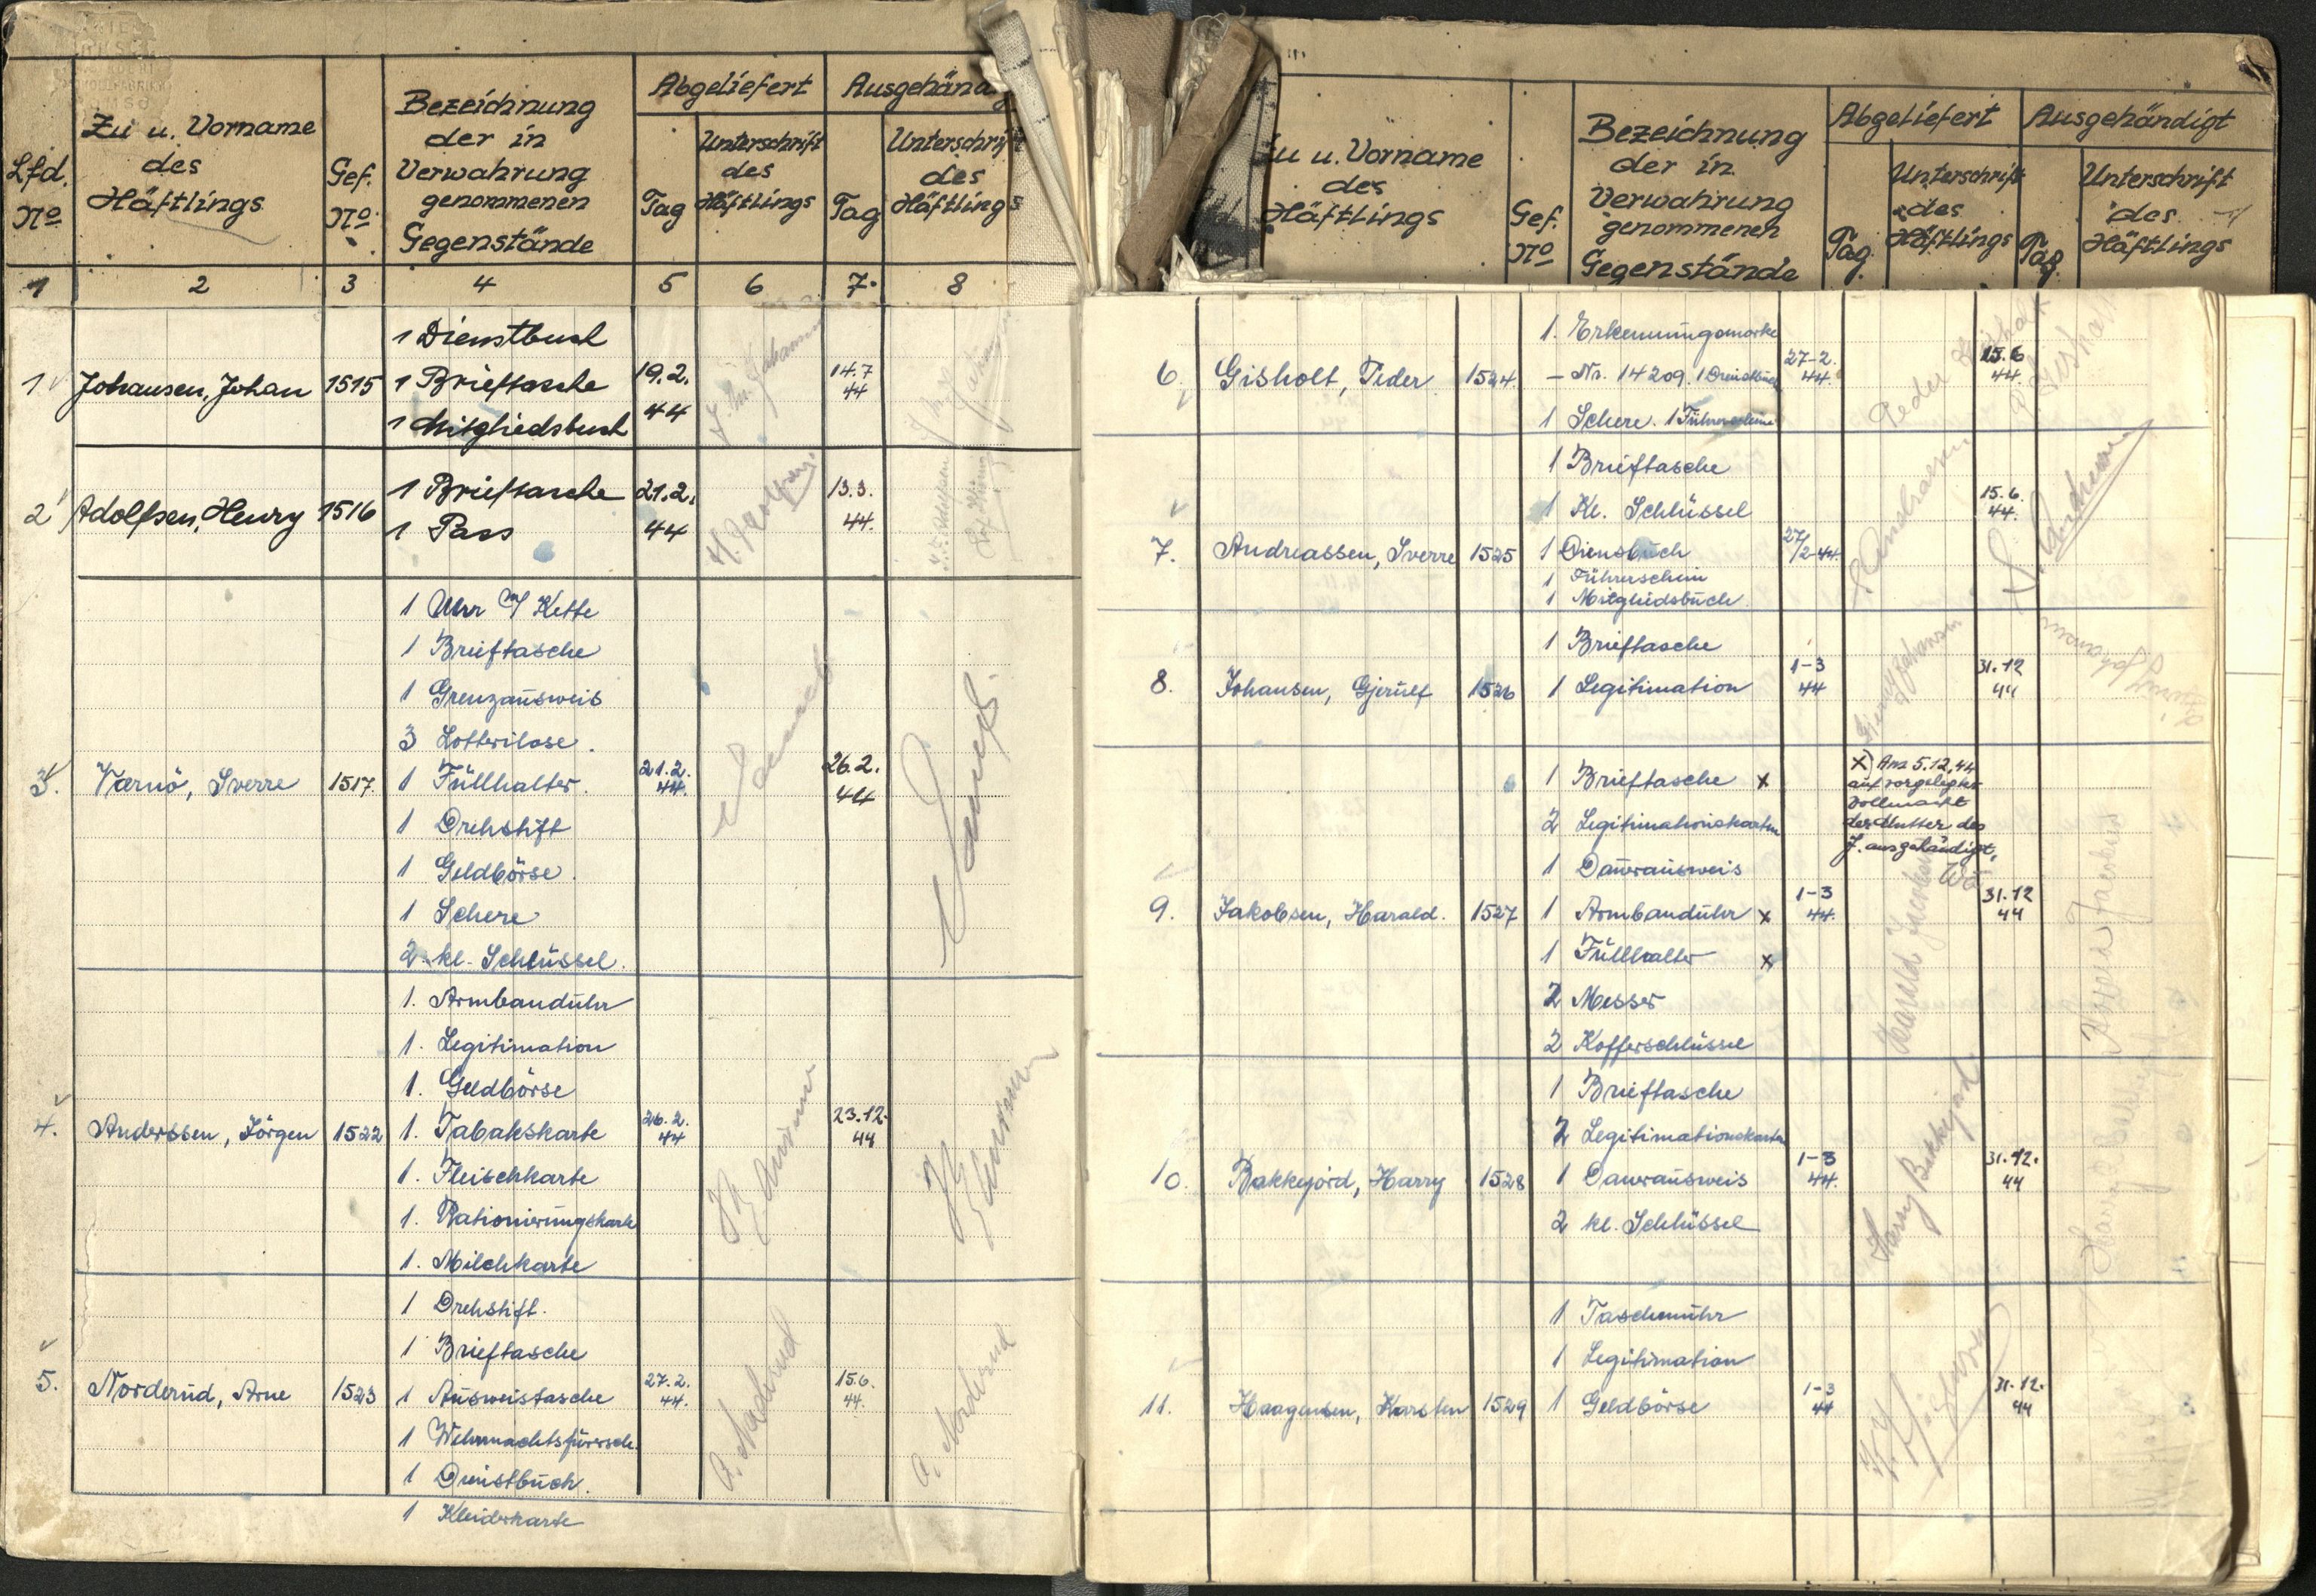 Lfd. No
Zu u. Vorname
des
Häftlings
Gef. No
Bezeichnung
der in
Verwahrung
genommenen
Gegenstände
Abgeliefert
Tag
Unterschrift
des
Häftlings
Tag
Unterschrift
des
Häftlings
1 2 3 4 5 6 7. 8
1 Dienstbuch
1 Johansen, Johan 1515 1 Brieftasche 19.2. 44 14.7 44
1 Mitgliedsbuch
1 Brieftasche
2 Adolfsen, Henry 1516 21.2. 44 13.3. 44.
1 Pass
1 Uhr m/ Kette
1 Brieftasche
1 Grenzausweis
3 Lotterilose.
3. Varnö, Sverre 1517 1 Füllhalter. 21.2. 44. 26.2. 44
1 Drehstift
1 Geldbörse.
1 Schere
2 kl. Schlüssel.
1. Armbanduhr
1. Legitimation
1. Geldbörse
4. Anderssen, Jörgen 1522 1. Tabakskarte 26.2. 44 23.12. 44
1. Fleischkarte
1. Rationierungskarte
1. Milchkarte
1 Drehstift.
1 Brieftasche
5. Norderud, Arne 1523 1 Ausweistasche 27.2. 44. 15.6. 44.
1 Wehrmachtsfürersch.
1 Dienstbuch.
1 Kleiderkarte
A. Norderud
Zu u. Vorname
des
Häftlings
Gef. No
Bezeichnung
der in
Verwahrung
genommenen
Gegenstände
Abgeliefert
Tag.
Unterschrift
des
Häftlings
Ausgehändigt
Tag.
Unterschrift
des
Häftlings
1. Erkennungsmarke
6. Gisholt, Peder 1524. – Nr. 14209. 1 Dienstbuch 27-2. 44. Peder Gisholt 15.6 44. P. Gisholt
1 Schere. 1 Führerschein
1 Brieftasche
1 Kl. Schlüssel 15.6. 44.
7. Andreassen, Sverre 1525 1 Diensbuch 27/2-44.
1 Führerschein
1 Mitgliedsbuch.
1 Brieftasche
8. Johansen, Gjerulf 1526 1 Legitimation 1-3 44 31.12 44
1 Brieftasche x
x) Am 5.12.44
auf vorgelegter
Vollmacht
der Mutter des
J. ausgehändigt.
2 Legitimationskarten
1 Daurausweis
9. Jakobsen, Harald. 1527 1 Armbanduhr x 1-3 44. Harald Jacobsen 31.12 44
1 Füllhalter x
2 Messer
2 Kofferschlüssel
1 Brieftasche
2 Legitimationskarten
10. Bakkejord, Harry 1528 1 Daurausweis 1-3 44. Harry Bakkejord. 31.12. 44
2 kl. Schlüssel
1 Taschenuhr
1 Legitimation
11. Haagensen, Karsten 1529 1 Geldbörse 1-3 44 31.12. 44